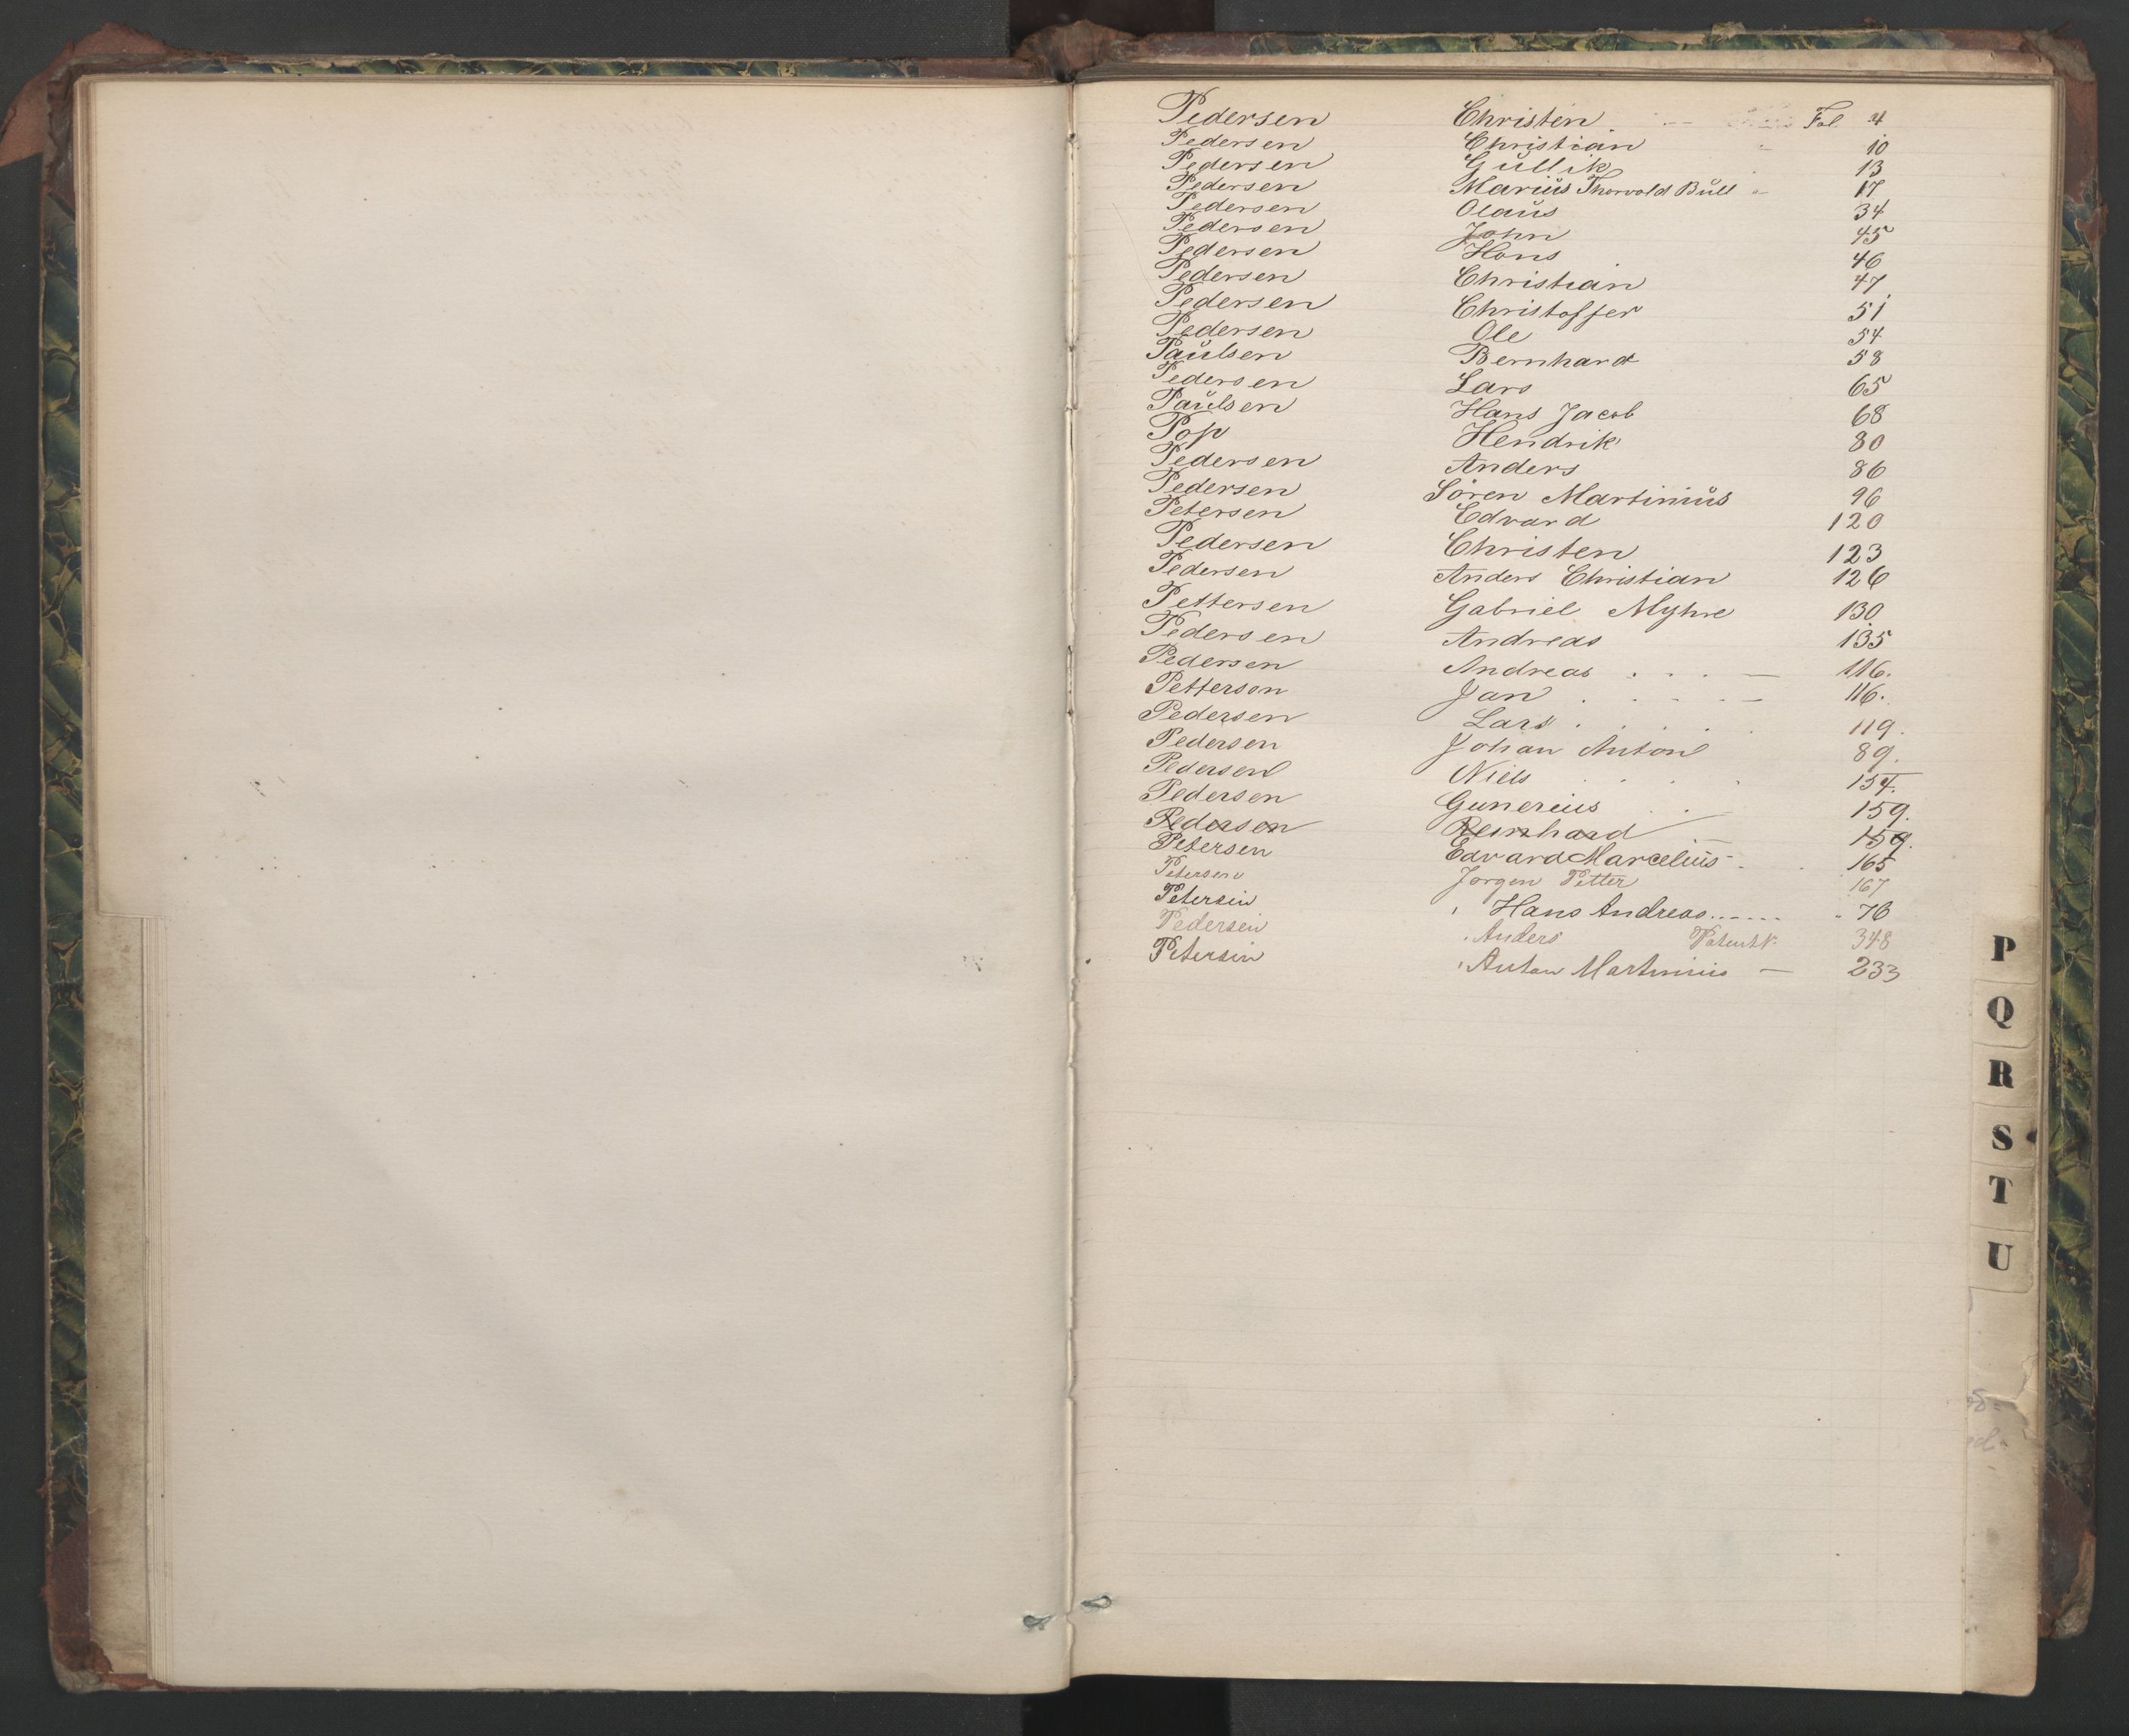 Pedersen Christen Fol. 4
Pedersen Christian 10
Pedersen Gŭllik 13
Pedersen Mariŭs Thorvald Bŭll 17
Pedersen Olaŭs 34
Pedersen John 45
Pedersen Hans 46
Pedersen Christian 47
Pedersen Christoffer 51
Pedersen Ole 54
Paŭlsen Bernhard 58
Pedersen Lars 65
Paŭlsen Hans Jacob 68
Pop Hendrik 80
Pedersen Anders 86
Pedersen Sören Martiniŭs 96
Petersen Edvard 120
Pedersen Christen 123
Pedersen Anders Christian 126
Pettersen Gabriel Myhre 130
Pedersen Andreas 135
Pedersen Andreas . . . — 116.
Petterson Jan . . . . — 116.
Pedersen Lars . . . . 119.
Pedersen Johan Anton 89.
Pedersen Niels . . . . 154.
Pedersen Gunerius . . 159.
Pedersen Reinhard — 159.
Petersen Edvard Marcelius - . 165
Petersen Jørgen Petter 167
Petersen Hans Andreas...... 76
Pedersen Anders 348
Petersen Anton Martinius — 233
P
Q
R
S
T
U